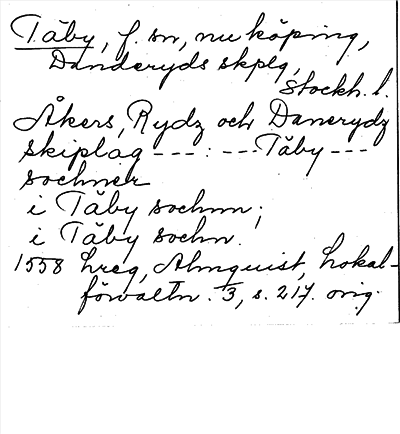 Täby, f. sn, nu köping,
Danderyds skplg,
Stockh. l.
Åkers, Rydz och Danerydz
skiplag --- : --- Täby ---
sochner
i Täby sochnn;
i Täby sochn.
1558 hreg, Almquist, Lokal-
förvaltn. 3, s. 217. orig.